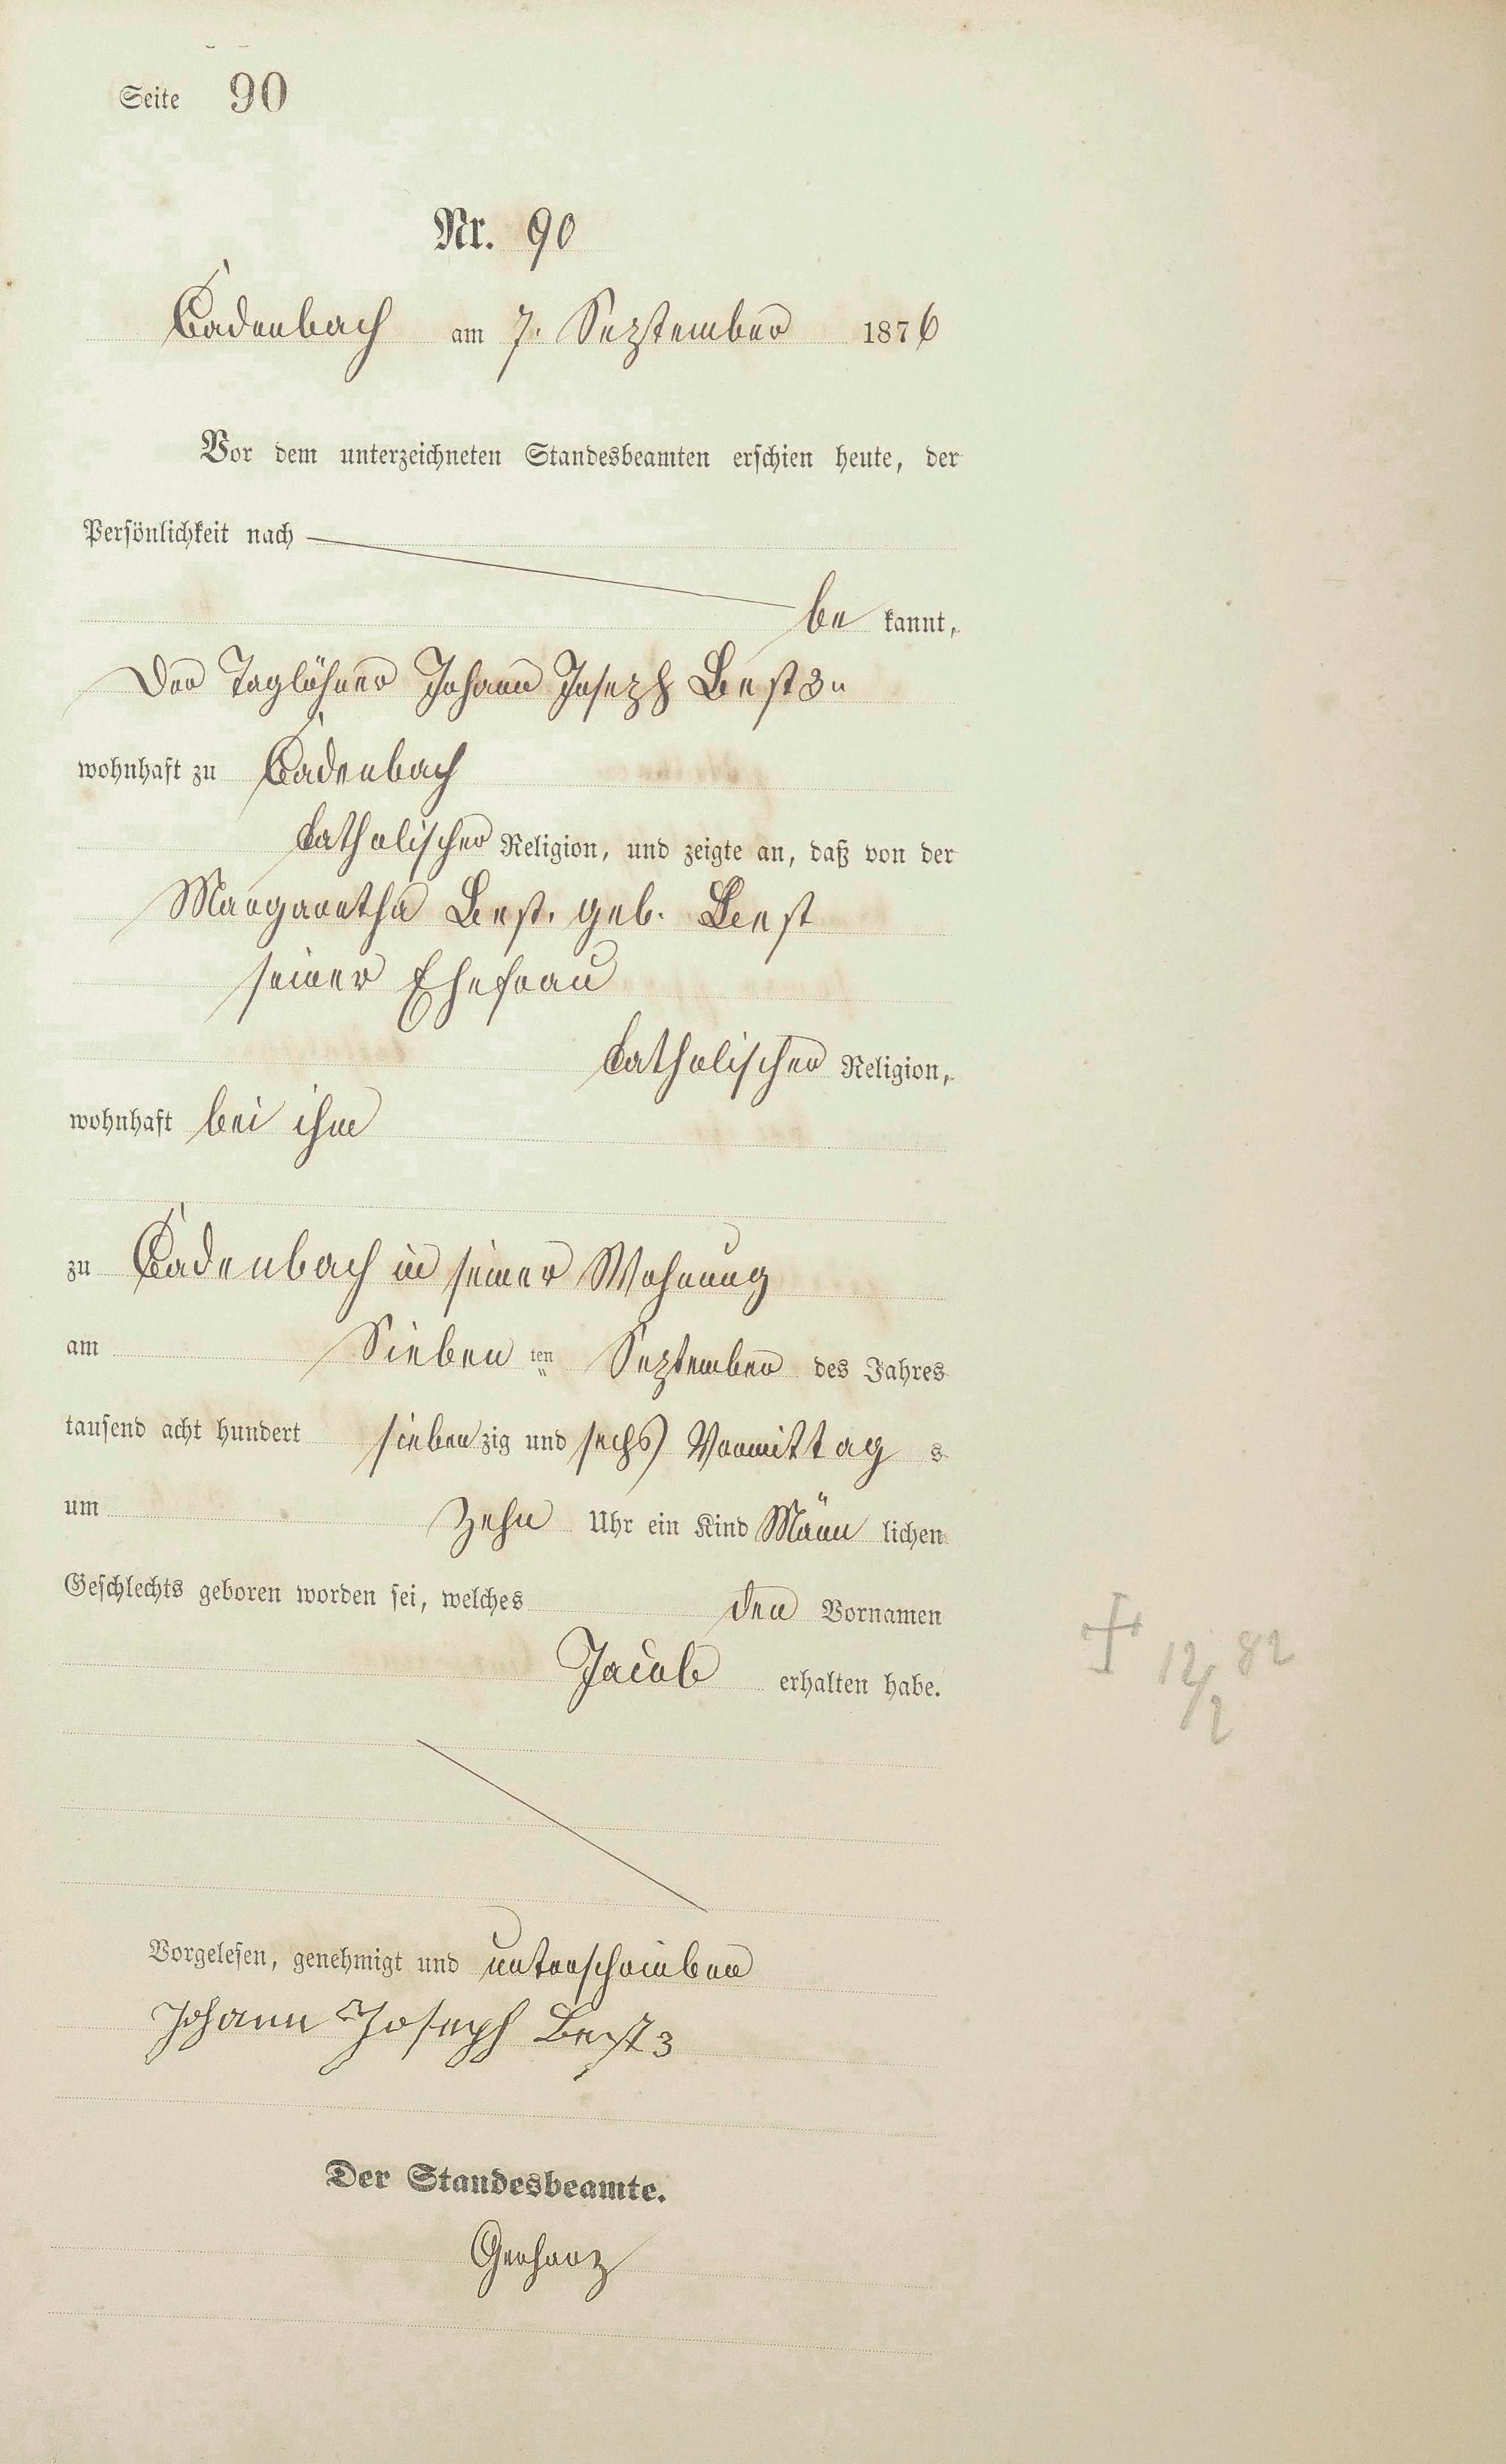 Seite 90
Nr. 90
Cadenbach am 7. September 1876
Vor dem unterzeichneten Standesbeamten erschien heute, der
Persönlichkeit nach
be kannt,
Der Taglöhner Johann Joseph Best 3"
wohnhaft zu Cadenbach
katholischer Religion, und zeigte an, daß von der
Margaretha Best, geb. Best
seiner Ehefrau
katholischer Religion,
wohnhaft bei ihm
zu Cadenbach in seiner Wohnung
am Sieben ten September des Jahres
tausend acht hundert siebenzig und sechs Vormittag s
um Zehn Uhr ein Kind Männ lichen
Geschlechts geboren worden sei, welches den Vornamen
Jacob erhalten habe.
+ 12/2 82
Vorgelesen, genehmigt und unterschrieben
Johann Joseph Best 3
Der Standesbeamte.
Gerharz